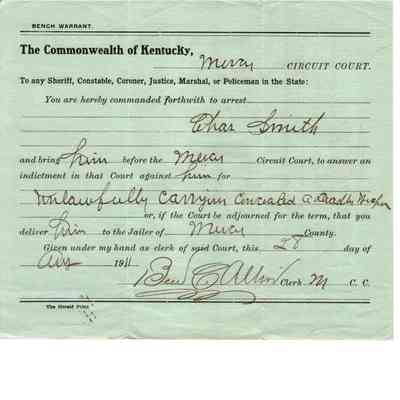 BENCH WARRANT.
The Commonwealth of Kentucky,
Mercer CIRCUIT COURT.
To any Sheriff, Constable, Coroner, Justice, Marshal, or Policeman in the State:
You are hereby commanded forthwith to arrest
Chas Smith
and bring him before the Mercer Circuit Court, to answer an
indictment in that Court against him for
Unlawfully Carrying Concealed a Deadly Weapon
or, if the Court be adjourned for the term, that you
deliver him to the Jailer of Mercer County.
Given under my hand as clerk of said Court, this 28 day of
1911
Ben C Allin Clerk M C. C.
The Herald Print